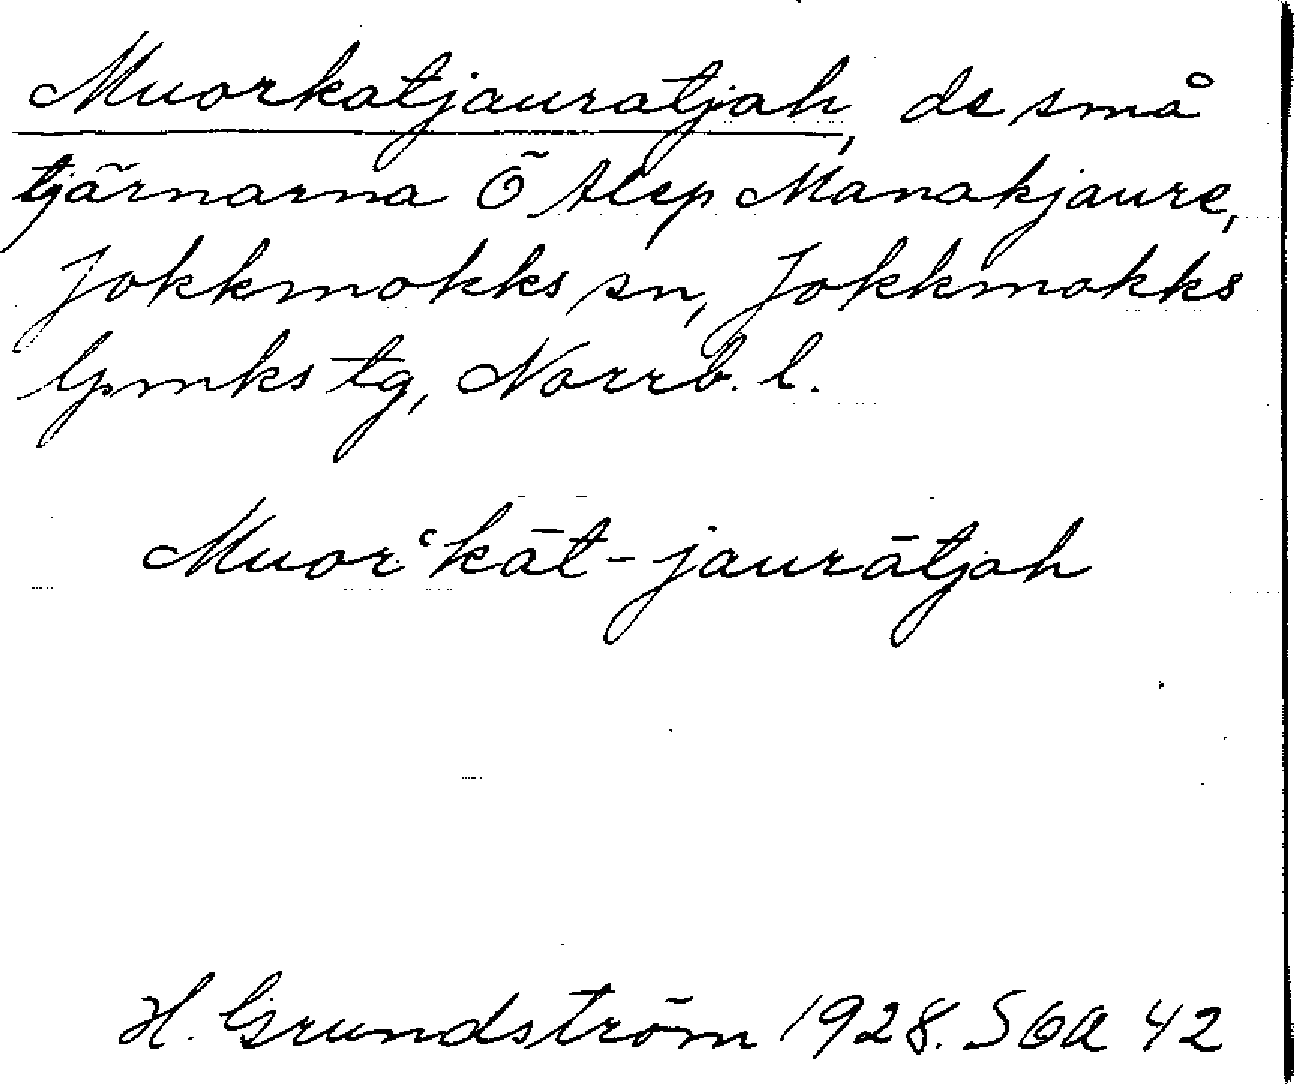 Muorkatjauratjah, de små
tjärnarna Ö Alep Manakjaure,
Jokkmokks sn, Jokkmokks
lpmks tg, Norrb. l.
Muorʿkāt-jaurātjah
H. Grundström 1928. SOA 42